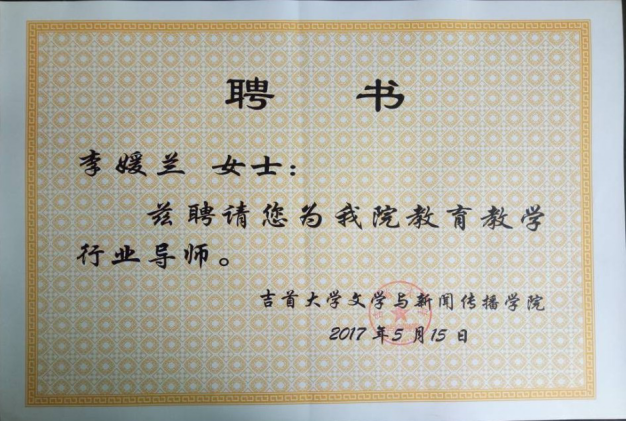 聘 书
李媛兰 女士：
兹聘请您为我院教育教学
行业导师。
吉首大学文学与新闻传播学院
2017年5月15日